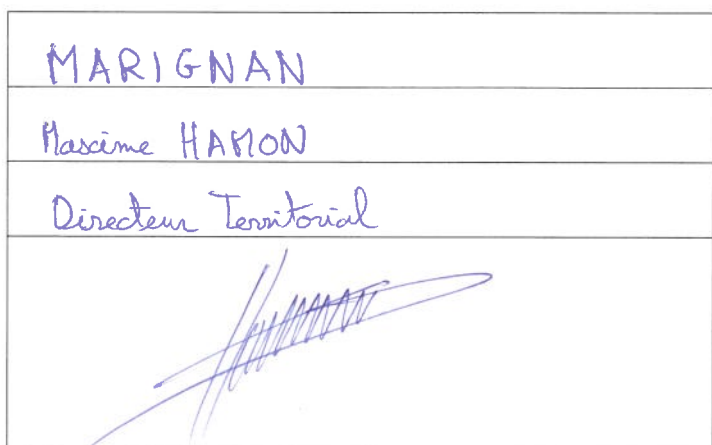 MARIGNAN
Maxime HAMON
Directeur Territorial